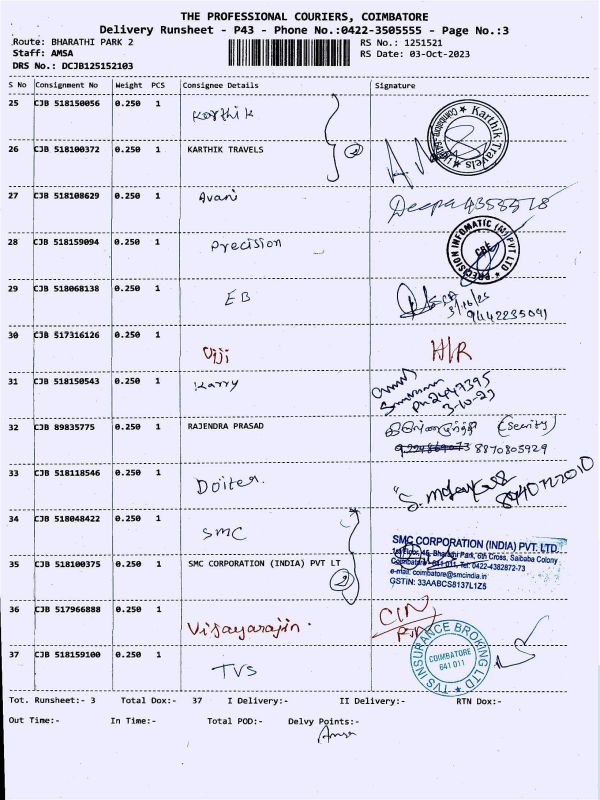 THE PROFESSIONAL COURIERS, COIMBATORE
Delivery Runsheet - P43 - Phone No.:0422-3505555 - Page No.:3
Route: BHARATHI PARK 2
RS No.: 1251521
Staff: AMSA
RS Date: 03-Oct-2023
DRS No.: DCJB125152103
S No Consignment No Weight PCS Consignee Details Signature
25 CJB 518150056 0.250 1 Karthik
Karthik Travels
26 CJB 518100372 0.250 1 KARTHIK TRAVELS 2
27 CJB 518108629 0.250 1 Avani Deepa
28 CJB 518159094 0.250 1 Precision
PRECISION INFOMATIC (M) PVT LTD
CBE
29 CJB 518068138 0.250 1 EB
9442235091
30 CJB 517316126 0.250 1 Viji H/R
31 CJB 518150543 0.250 1 Karry
3-10-23
32 CJB 89835775 0.250 1 RAJENDRA PRASAD
8870805929
33 CJB 518118546 0.250 1 Doiter.
34 CJB 518048422 0.250 1 SMC
SMC CORPORATION (INDIA) PVT. LTD.
1st Floor, 46, Bharathi Park, 6th Cross, Saibaba Colony
Coimbatore - 641 011, Tel: 0422-4382872-73
e-mail: coimbatore@smcindia.in
GSTIN: 33AABCS8137L1Z5
35 CJB 518100375 0.250 1 SMC CORPORATION (INDIA) PVT LT 2
36 CJB 517966888 0.250 1 Vijayarajin.
37 CJB 518159100 0.250 1 TVS
TVS INSURANCE BROKING LTD
COIMBATORE
641 011
Tot. Runsheet:- 3 Total Dox:- 37 I Delivery:- II Delivery:- RTN Dox:-
Out Time:- In Time:- Total POD:- Delvy Points:-
Amsa